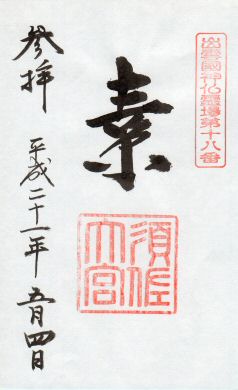 出雲國神仏霊場第十八番
素
須佐
大宮
参拝
平成二十一年五月四日